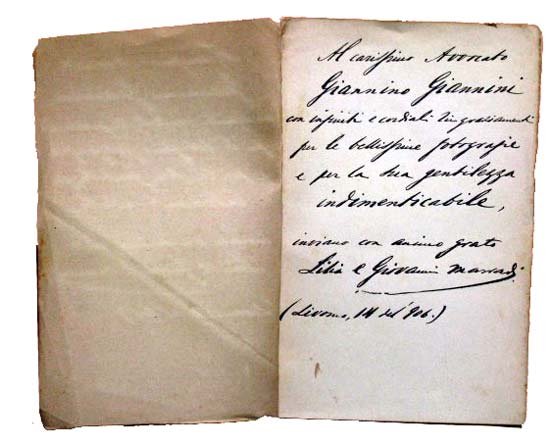 Al carissimo Avvocato
Giannino Giannini
con infiniti e cordiali ringraziamenti
per le bellissime fotografie
e per la sua gentilezza
indimenticabile,
inviano con animo grato
Lilia e Giovanni Marradi
(Livorno, del '906.)